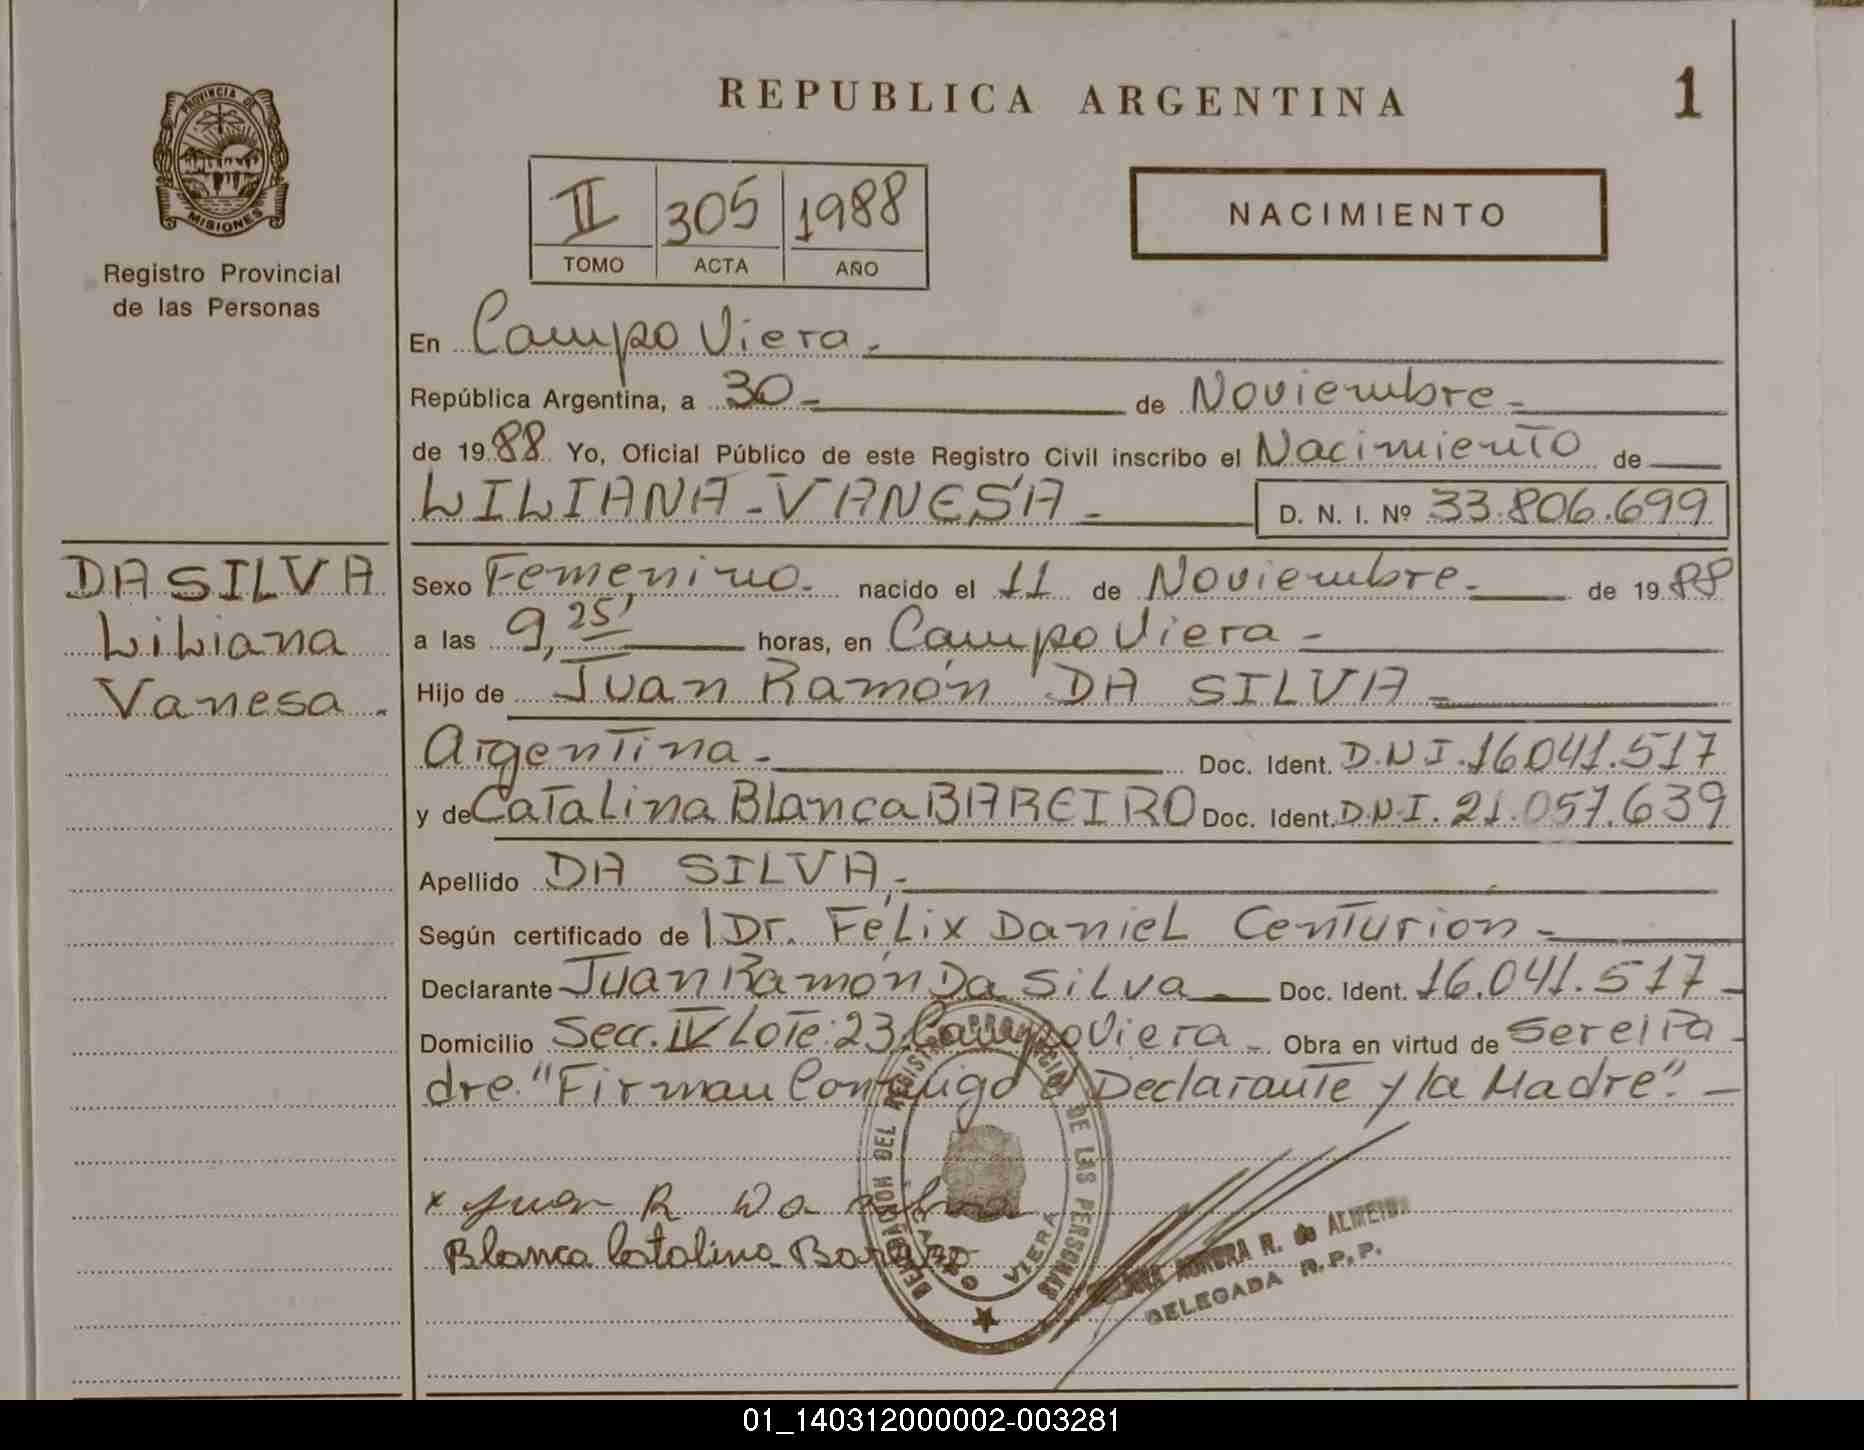 REPUBLICA ARGENTINA
1
PROVINCIA DE
MISIONES
Registro Provincial
de las Personas
II 305 1988
TOMO ACTA AÑO
NACIMIENTO
En Campo Viera.
República Argentina, a 30 de Noviembre
de 1988 Yo, Oficial Público de este Registro Civil inscribo el Nacimiento de
LILIANA-VANESA D. N. I. Nº 33.806.699
DA SILVA
Liliana
Vanesa.
Sexo Femenino. nacido el 11 de Noviembre de 1988
a las 9,25' horas, en Campo Viera
Hijo de Juan Ramón DA SILVA
Argentina. Doc. Ident. D.N.I. 16.041.517
y de Catalina Blanca BAREIRO Doc. Ident. D.N.I. 21.057.639
Apellido DA SILVA.
Según certificado de Dr. Félix Daniel Centurión
Declarante Juan Ramón Da Silva Doc. Ident. 16.041.517
Domicilio Secc. IV Lote: 23, Campo Viera Obra en virtud de ser el Pa
dre. "Firman Conmigo el Declarante y la Madre".
DELEGACION DEL REGISTRO PROVINCIAL DE LAS PERSONAS
VIERA
x Juan R Da Silva
Blanca Catalina Bareiro
AURORA R. de ALMEIDA
DELEGADA R.P.P.
01_140312000002-003281